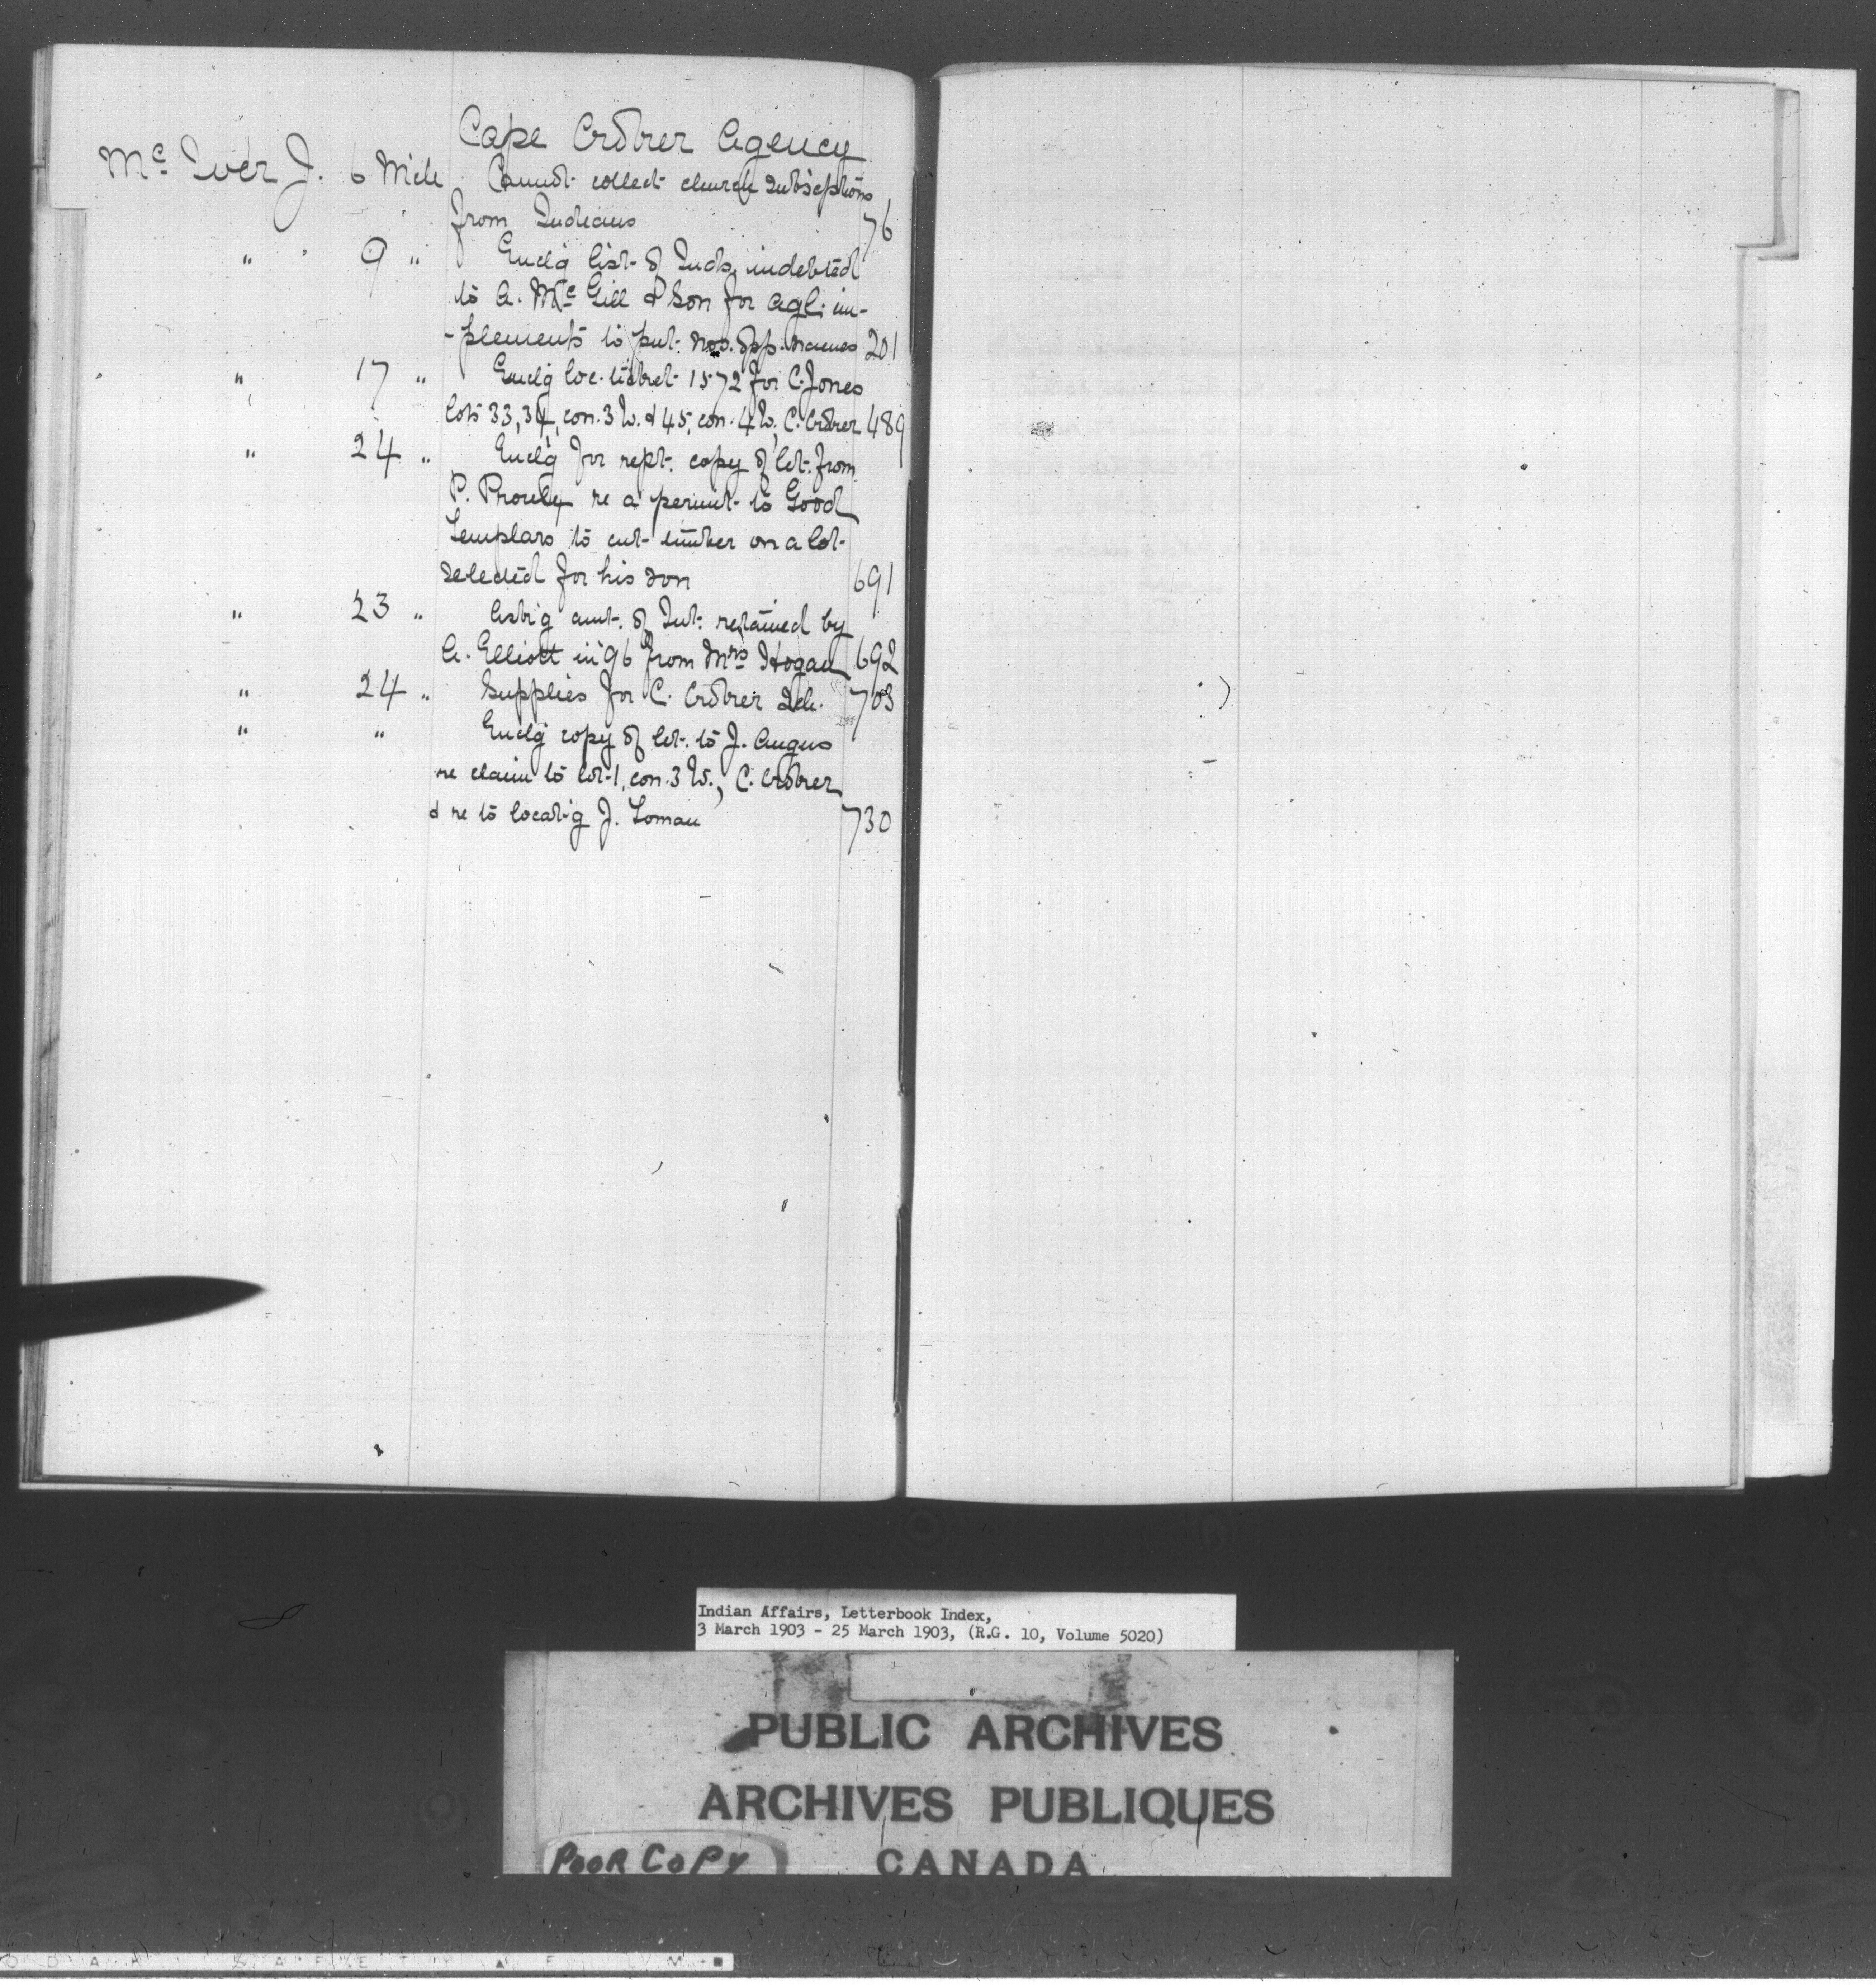 Cape Croker Agency
Mc Iver J. 6 Mch Cannot collect church subscptions
from Indians 76
" 9 " Enclg list of Inds. indebted
to A. McGill & Son for agl. im-
-plements to put nos. opp. names 201
" 17 " Enclg loc. ticket 1572 for C. Jones
lots 33, 34, con. 3 W. & 45, con. 4 W., C. Croker 489
" 24 " Enclg for rept. copy of let. from
P. Proulx re a permit to Good
Templars to cut timber on a lot
selected for his son 691
" 23 " Askg amt. of Int. retained by
A. Elliott in '96 from Mrs Hogan 692
" 24 " Supplies for C. Croker Sch. 703
" " Enclg copy of let. to J. Angus
re claim to lot 1, con. 3 W., C. Croker
& re to locatg J. Loman 730
Indian Affairs, Letterbook Index,
3 March 1903 - 25 March 1903, (R.G. 10, Volume 5020)
PUBLIC ARCHIVES
ARCHIVES PUBLIQUES
POOR COPY CANADA